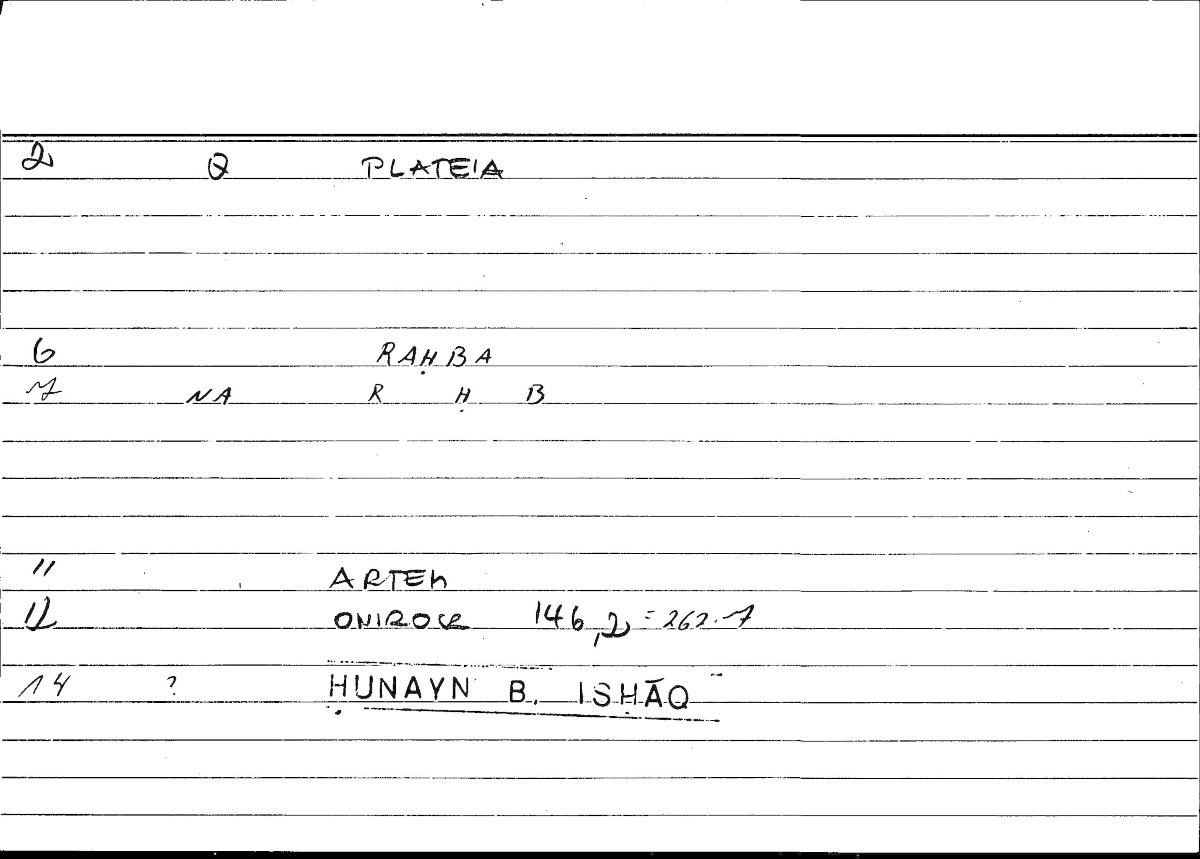 2 Q PLATEIA
6 RAḤBA
7 NA R Ḥ B
11 ARTEM
12 ONIROCR 146,2 = 262.7
14 ? ḤUNAYN B. ISḤĀQ